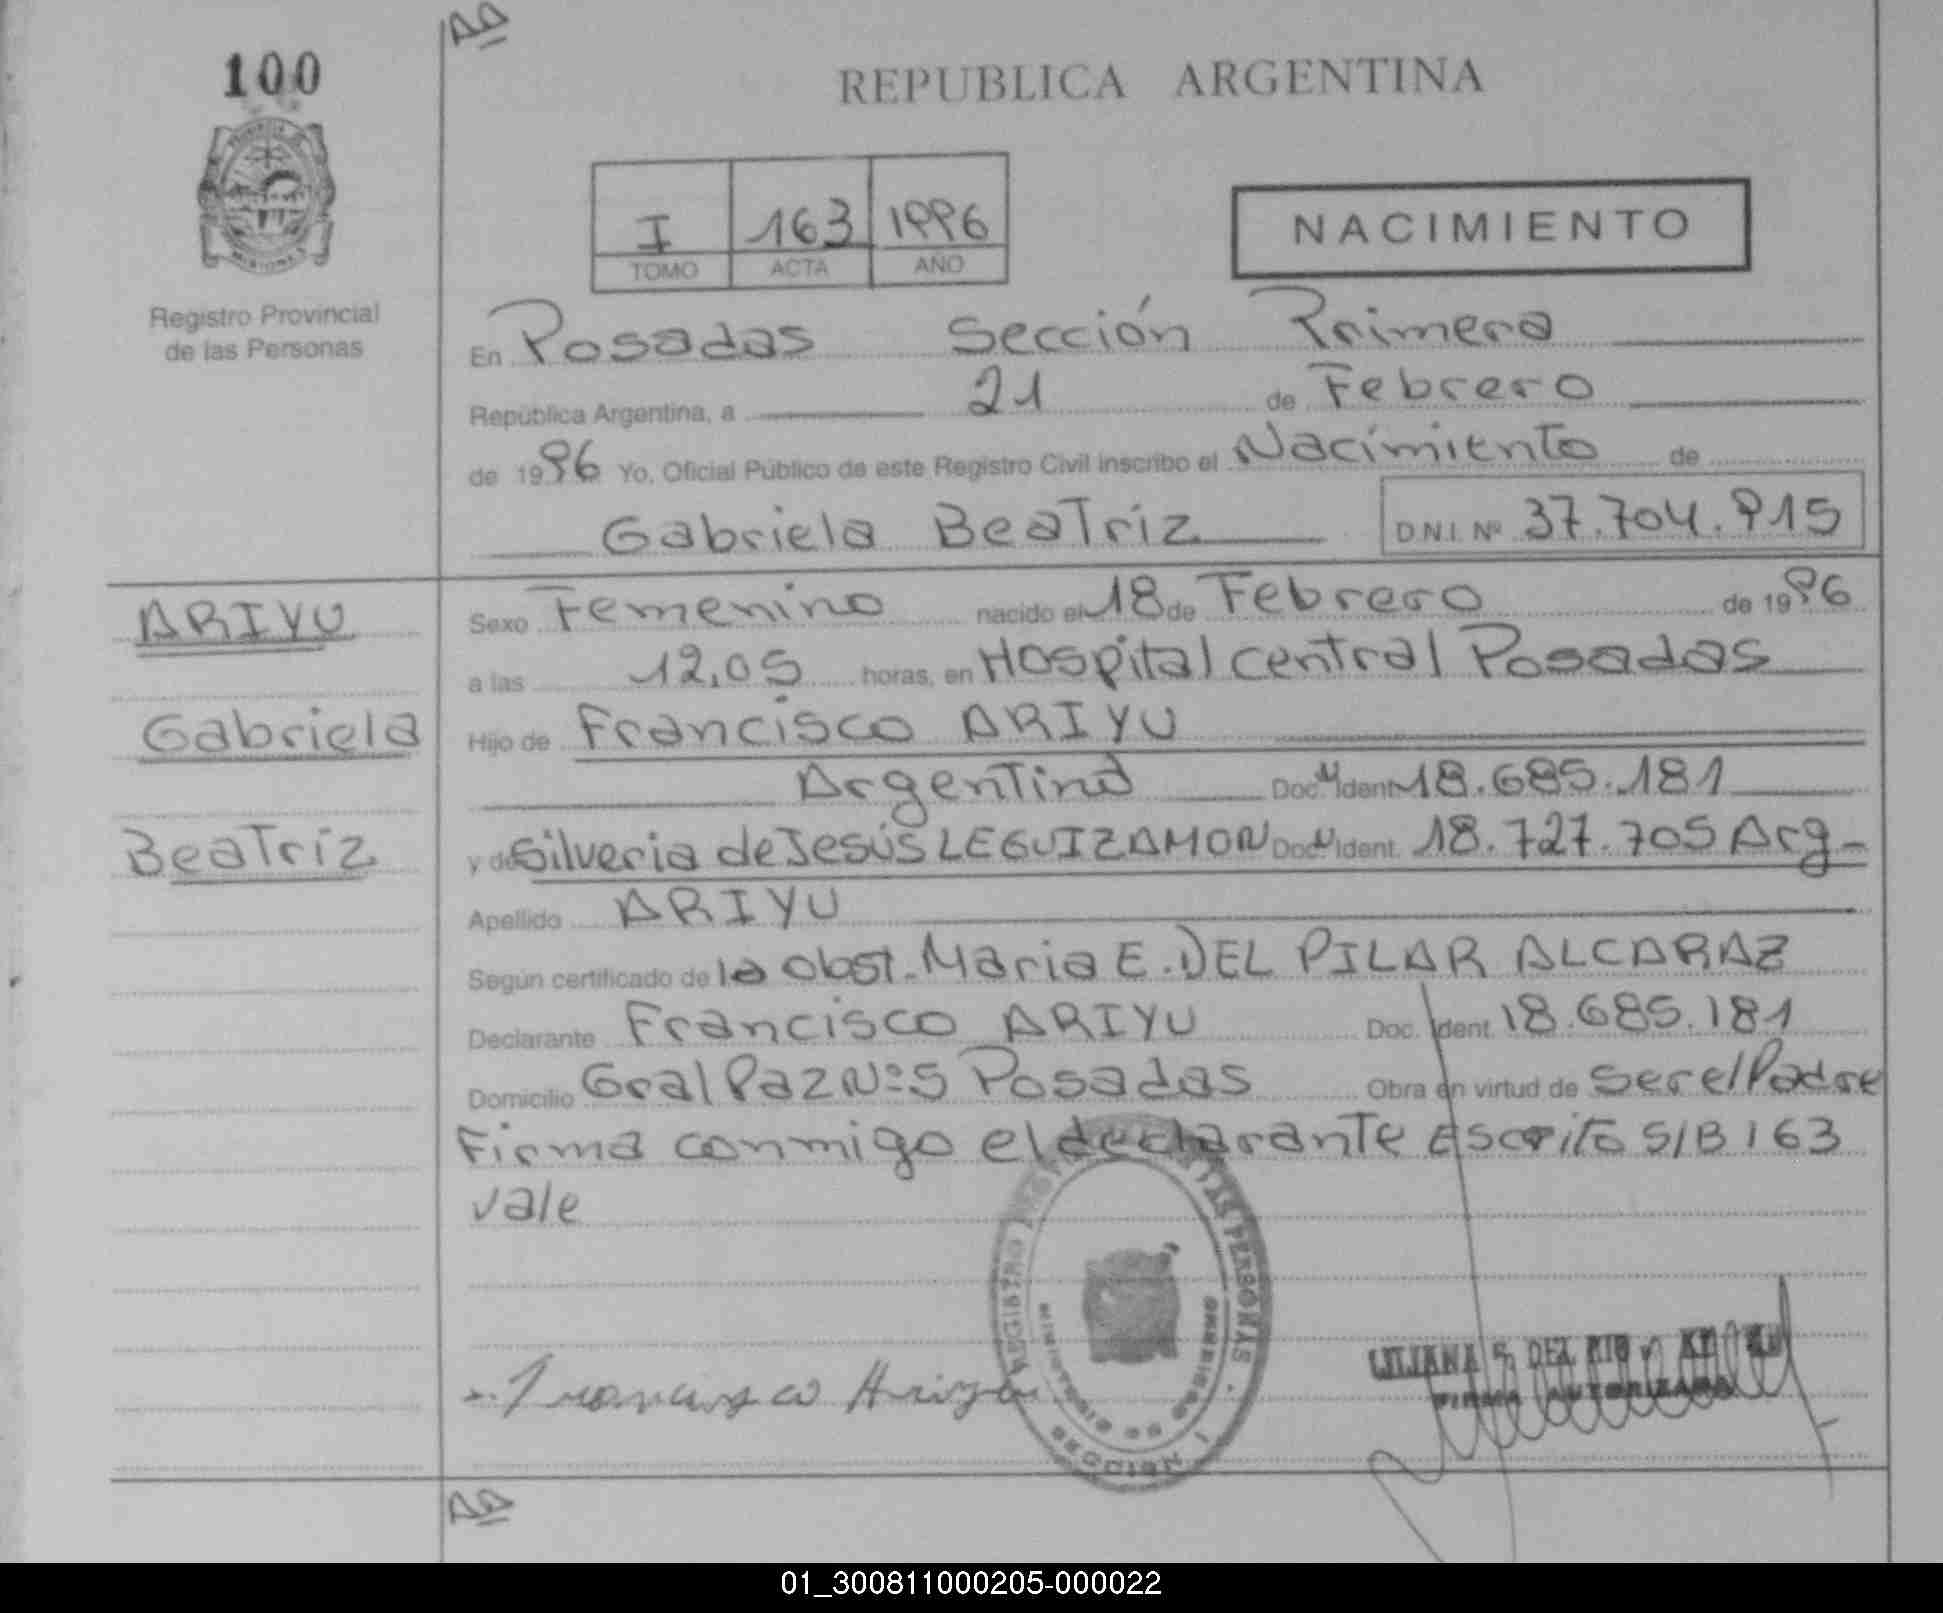 100
REPUBLICA ARGENTINA
I 163 1996
TOMO ACTA AÑO
NACIMIENTO
MISIONES
Registro Provincial
de las Personas
En Posadas Sección Primera
República Argentina, a 21 de Febrero
de 1996 Yo, Oficial Público de este Registro Civil inscribo el Nacimiento de
Gabriela Beatriz D.N.I. Nº 37.704.915
ARIYU
Gabriela
Beatriz
Sexo Femenino nacido el 18 de Febrero de 1996
a las 12,05 horas, en Hospital central Posadas
Hijo de Francisco ARIYU
Argentino Doc. Ident 18.685.181
y de Silveria de Jesús LEGUIZAMON Doc. Ident. 18.727.705 Arg-
Apellido ARIYU
Según certificado de la obst. Maria E. DEL PILAR ALCARAZ
Declarante Francisco ARIYU Doc. Ident. 18.685.181
Domicilio Gral Paz Nº 5 Posadas Obra en virtud de ser el Padre
Firma conmigo el declarante Escrito S/B 163
vale
REGISTRO DE LAS PERSONAS
MINISTERIO DE GOBIERNO
SECCION I
Francisco Ariyu
LILIANA DEL RIO
FIRMA AUTORIZADA
01_300811000205-000022